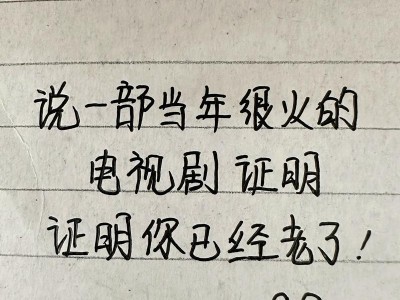 说一部当年很火的
电视剧 证明
证明你已经老了!